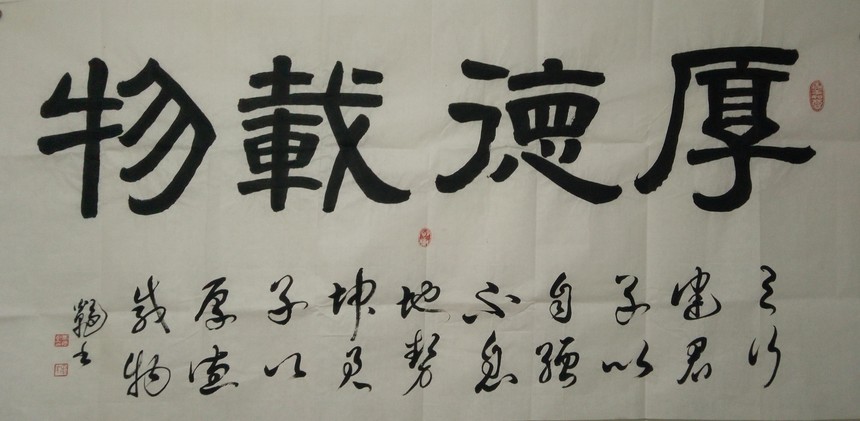 厚德載物
天行
健君
子以
自强
不息
地勢
坤君
子以
厚德
載物